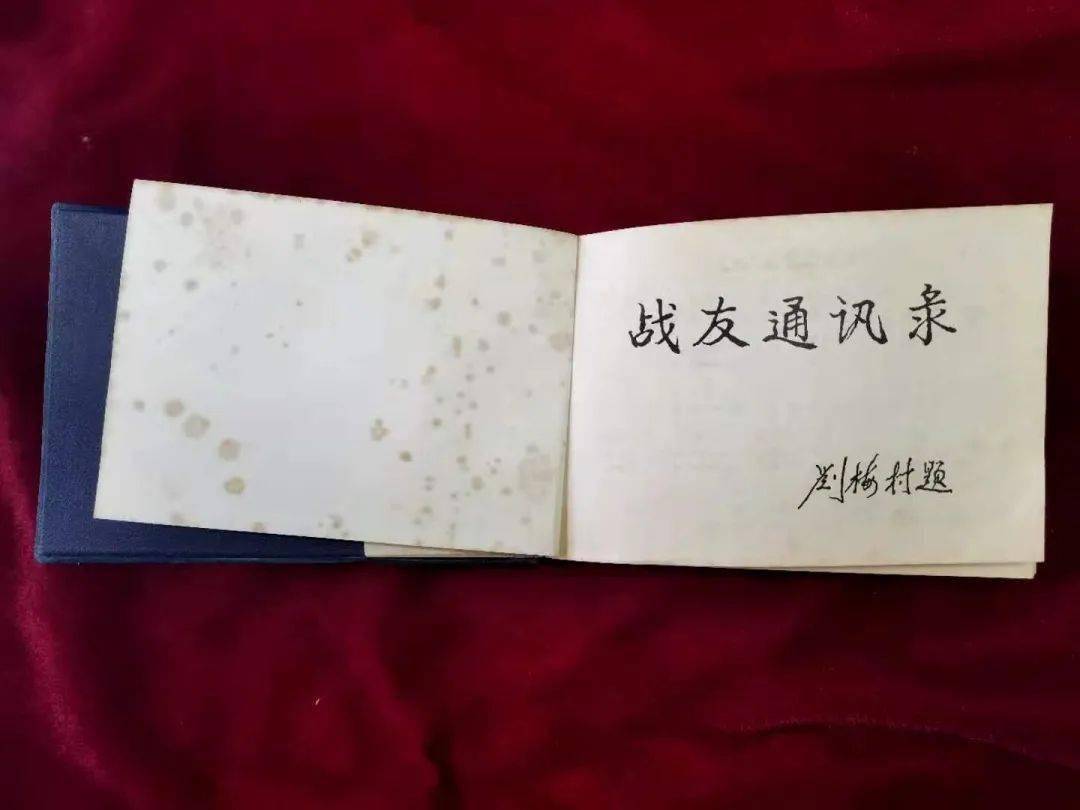 战友通讯录
刘梅村题